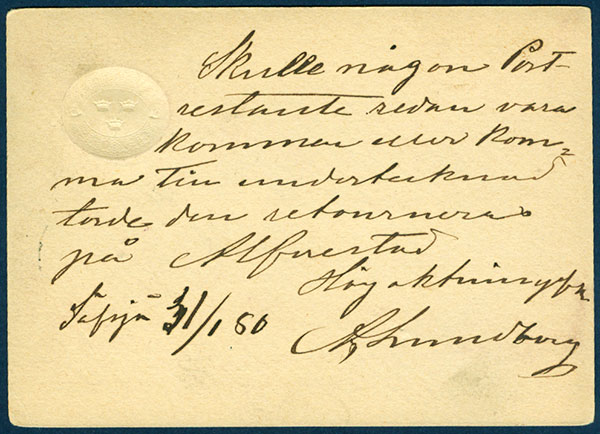 Skulle någon Post-
restante redan vara
kommen eller kom=
ma till undertecknad
torde den retourneras
på Alfvestad
Högaktningsfu
Säfsjö 31/1 80
A Lundborg